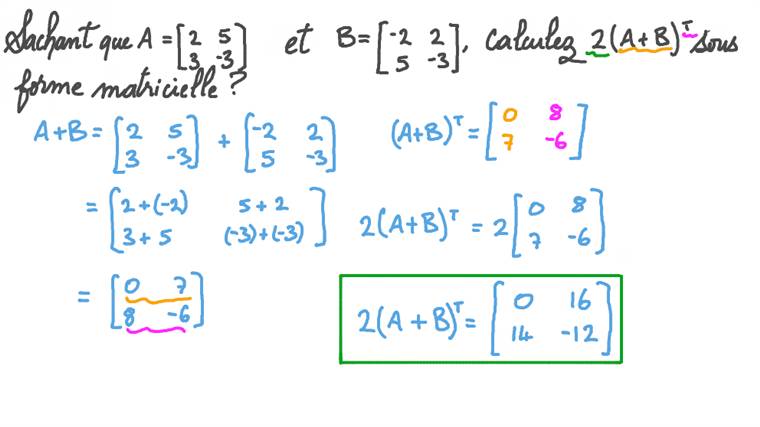 Sachant que A = [2 5; 3 -3] et B = [-2 2; 5 -3], calculez 2(A+B)^T sous
forme matricielle ?
A+B = [2 5; 3 -3] + [-2 2; 5 -3]
= [2+(-2) 5+2; 3+5 (-3)+(-3)]
= [0 7; 8 -6]
(A+B)^T = [0 8; 7 -6]
2(A+B)^T = 2 [0 8; 7 -6]
2(A+B)^T = [0 16; 14 -12]